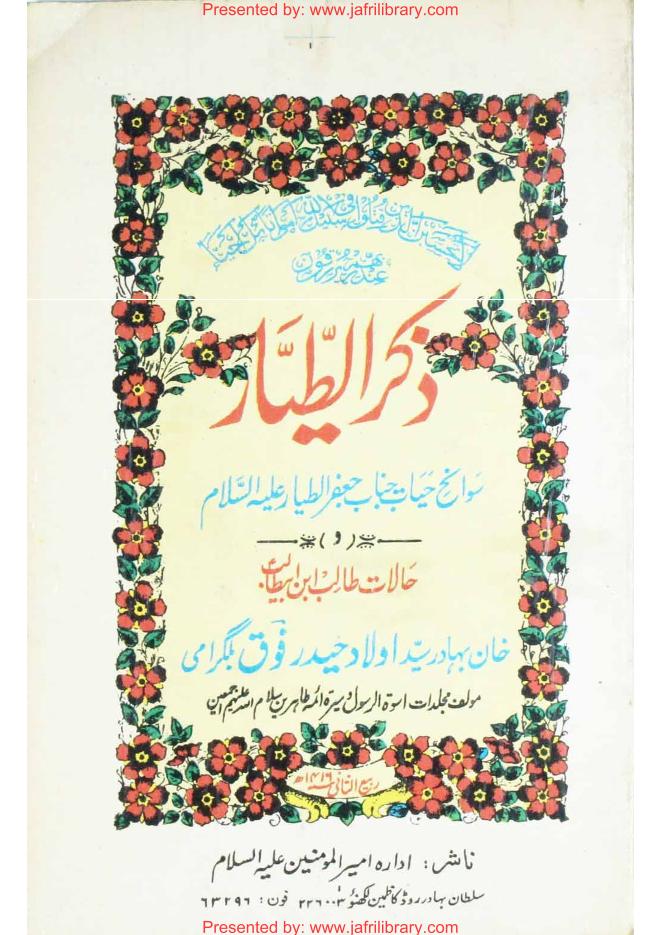 Presented by: www.jafrilibrary.com
۱
لاتحسبن الذین قتلوا فی سبیل اللہ امواتا بل احیاء
عند ربھم یرزقون
ذکر الطّیَّار
سَوانح حیَات جناب جعفر الطیار علیہ السَّلام
(و)
حَالات طالب ابن ابیطالبؑ
خان بہادر سیّد اولاد حیدر فوقؔ بلگرامی
مولف مجلدات اسوۃ الرسول و سیرۃ ائمہ طاہرین سلام اللہ علیہم اجمعین
ربیع الثانی ۱۴۱۶ھ
ناشر: ادارہ امیر المومنین علیہ السلام
سلطان بہادر روڈ کاظمین لکھنؤ ۲۲۶۰۰۳ فون: ۶۳۲۹۶
Presented by: www.jafrilibrary.com